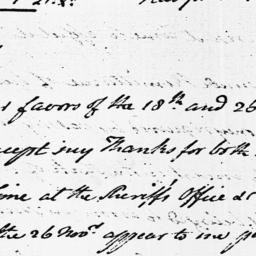 favors of the 18th and 26
accept my Thanks for both
time at the Sheriff's Office &c
the 26 Novr. appear to me